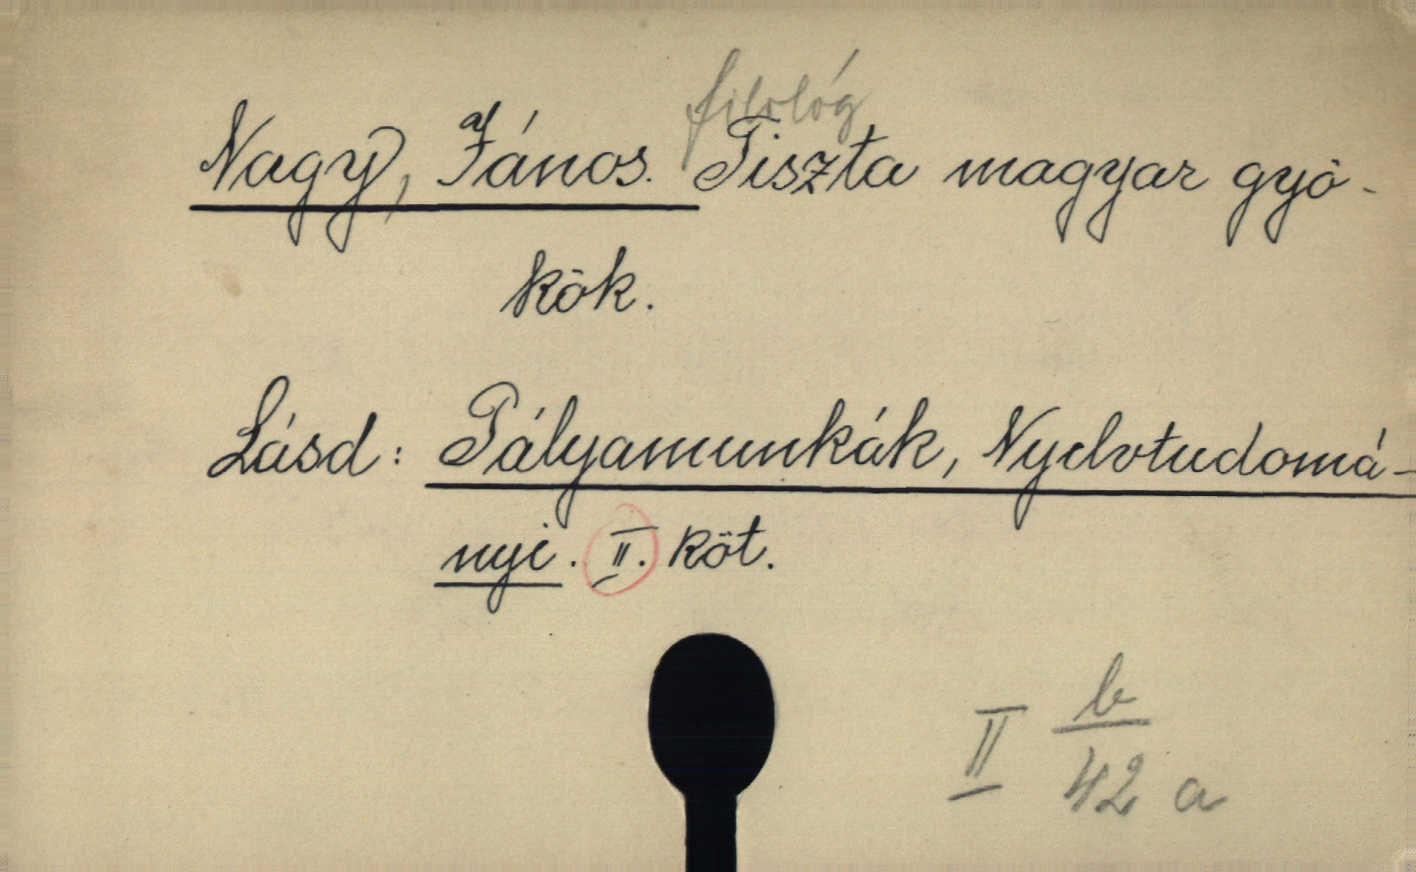 filológ
Nagy, János. Tiszta magyar gyö-
kök.
Lásd: Pályamunkák, Nyelvtudomá-
nyi. II. köt.
II b
42 a